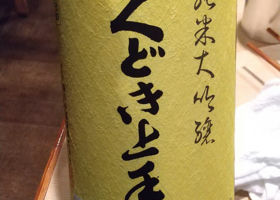 純米大吟醸
くどき上手